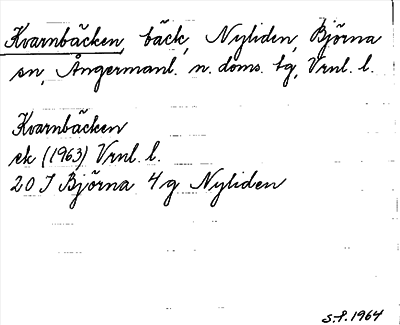 Kvarnbäcken, bäck, Nyliden, Björna
sn, Ångermanl. n. doms. tg, Vrnl. l.
Kvarnbäcken
ek (1963) Vrnl. l.
20 J Björna 4g Nyliden
S.P. 1964